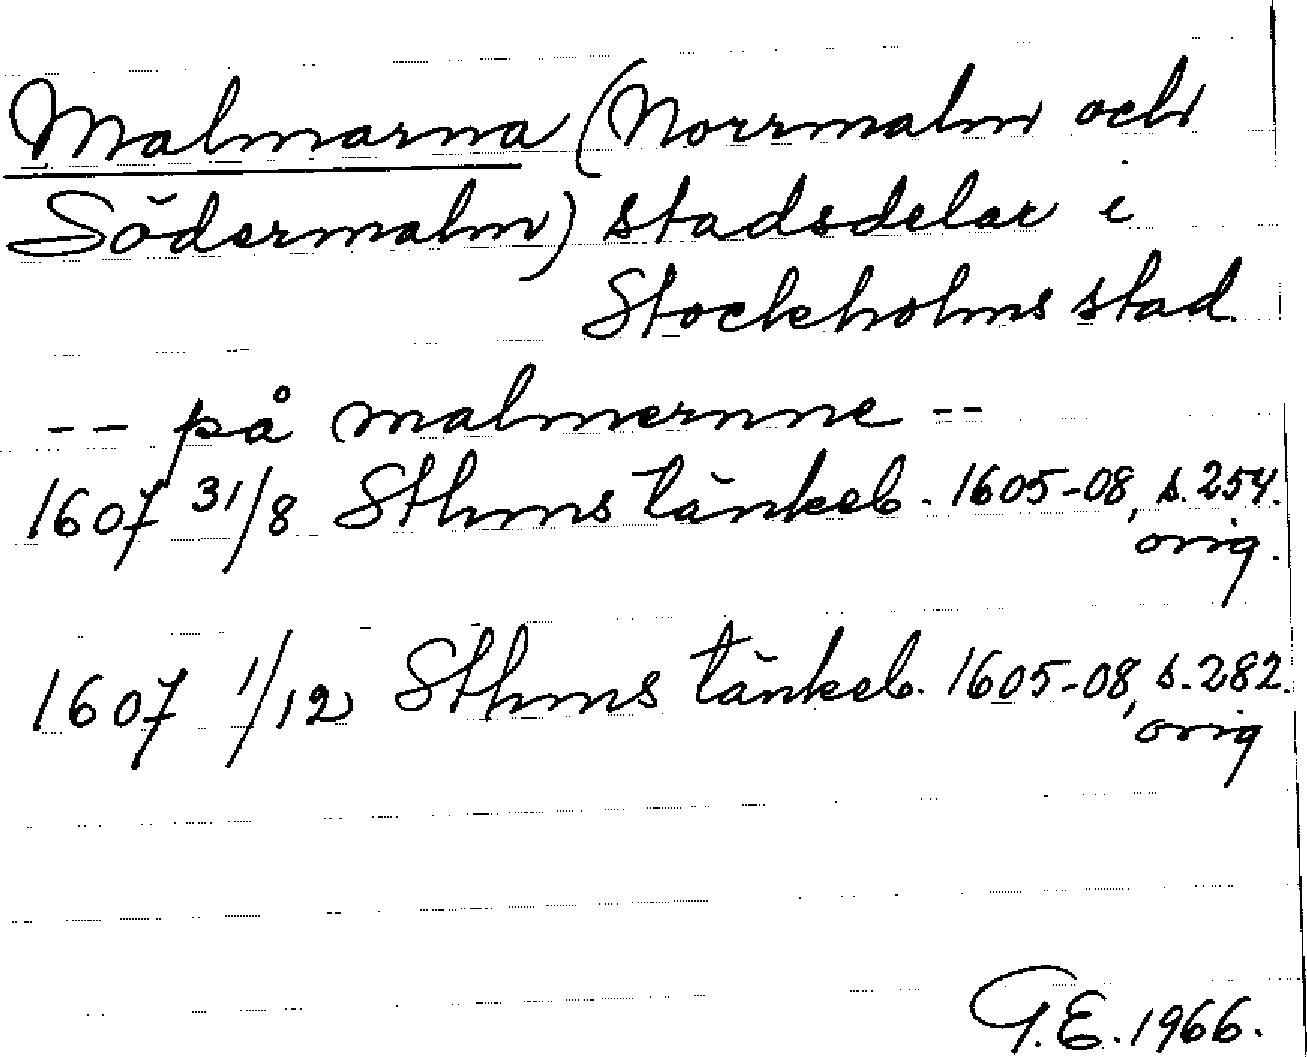 Malmarna (Norrmalm och
Södermalm) stadsdelar i
Stockholms stad.
-- på malmernne --
1607 31/8 Sthms tänkeb. 1605-08, s. 254.
orig.
1607 1/12 Sthms tänkeb. 1605-08, s. 282.
orig
G.E. 1966.